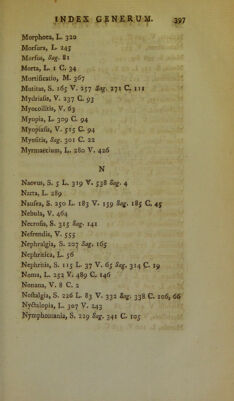 INDEX GENERUM. 397
Morphoea, L. 320
Morsura, L. 245
Morsus, Sag. 81
Morta, L. 1 C. 34
Mortificatio, M. 367
Mutitas, S. 165 V. 257 Sag. 271 C. 111
Mydriasis, V. 237 C. 93
Myocoilitis, V. 63
Myopia, L. 309 C. 94
Myopiasis, V. 515 C. 94
Myositis, Sag. 301 C. 22
Myrmaecium, L. 280 V. 426
N
Naevus, S. 5 L. 319 V. 538 Sag. 4
Narta, L. 289
Nausea, S. 250 L. 183 V. 159 Sag. 185 C. 45
Nebula, V. 464
Necrosis, S. 315 Sag. 141
Nefrendis, V. 555
Nephralgia, S. 227 Sag. 165
Nephritica, L. 56
Nephritis, S. 115 L. 37 V. 65 Sag. 314 C. 19
Noma, L. 252 V. 489 C. 146
Nonana, V. 8 C. 2
Nostalgia, S. 226 L. 83 V. 332 Sag. 338 C. 106, 66
Nyctalopia, L. 307 V. 243
Nymphomania, S. 229 Sag. 341 C. 105